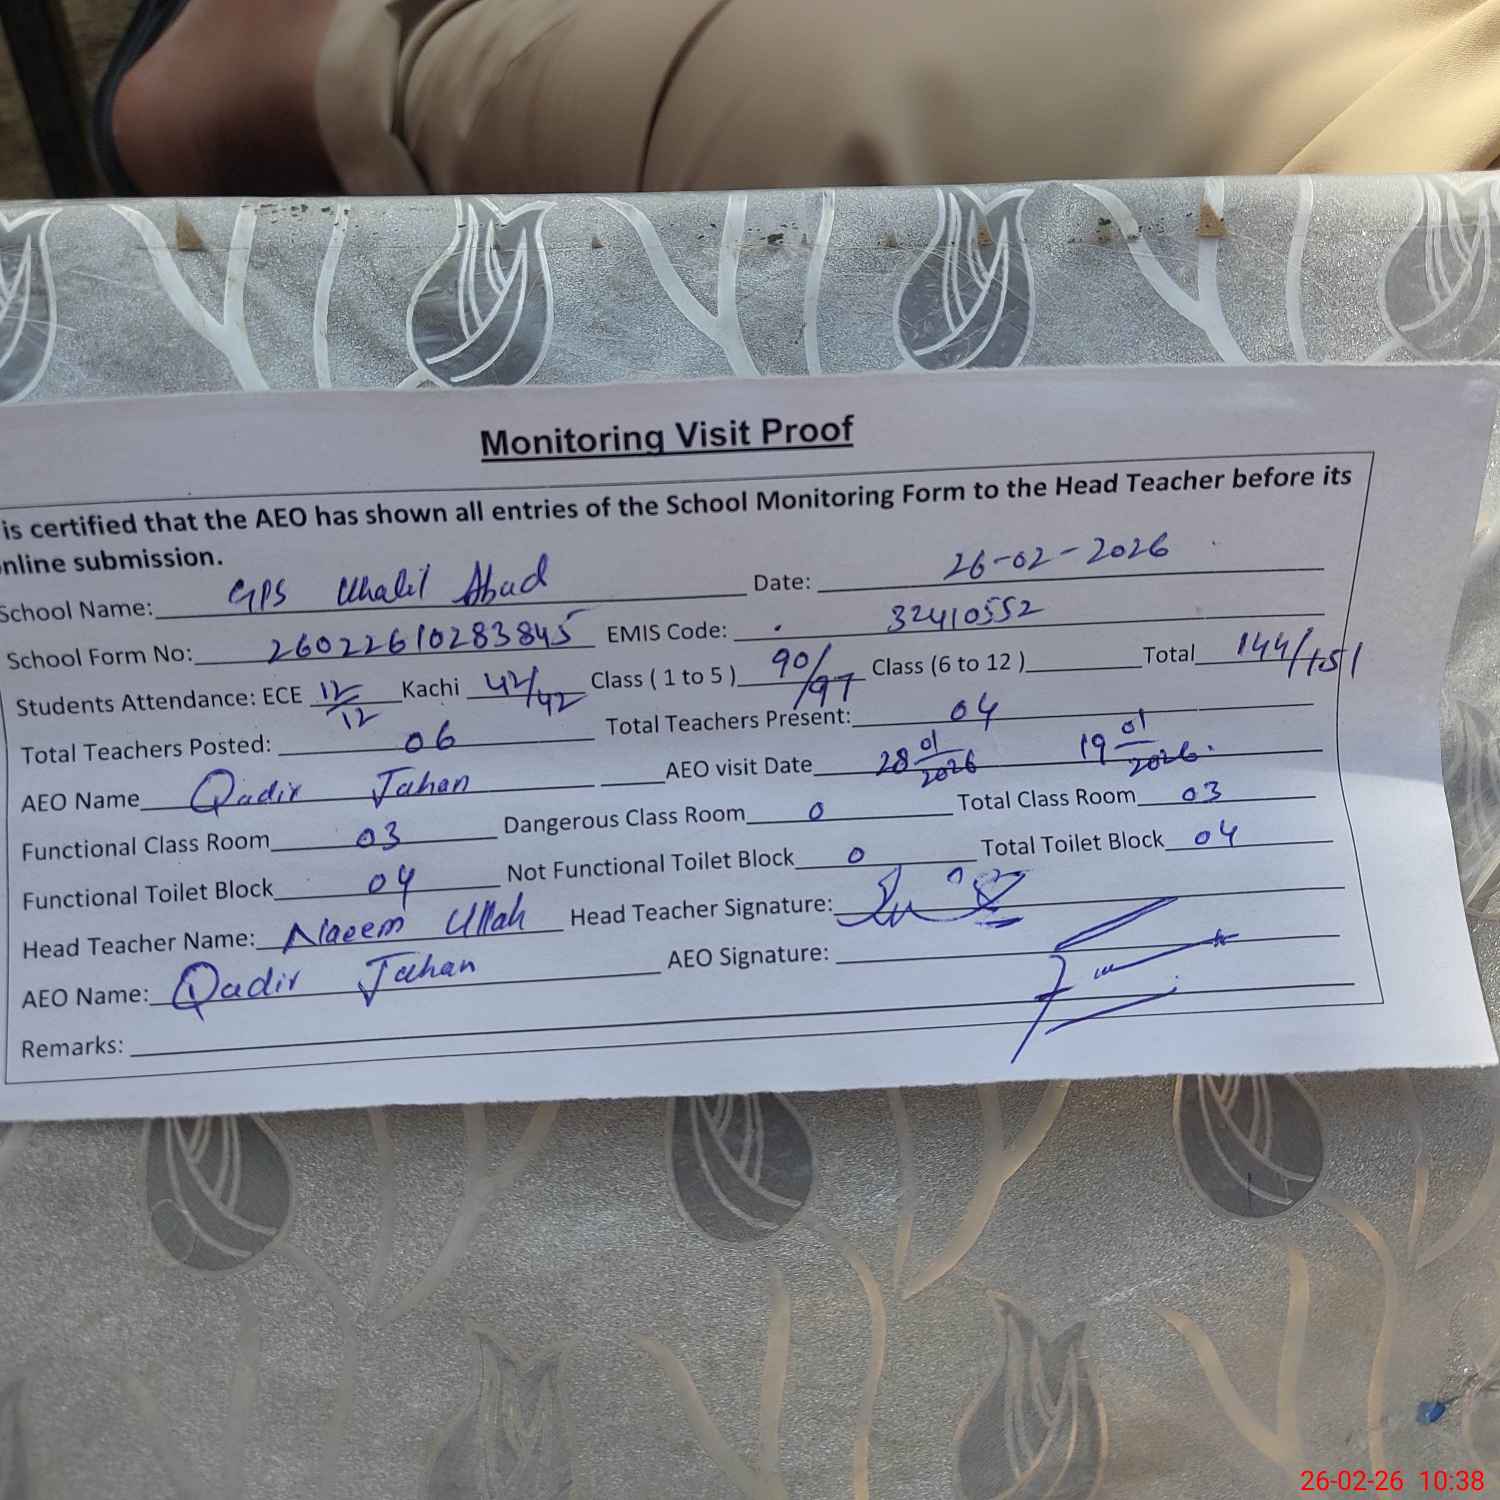 Monitoring Visit Proof
is certified that the AEO has shown all entries of the School Monitoring Form to the Head Teacher before its
nline submission.
School Name: GPS Khalil Abad Date: 26-02-2026
School Form No: 26022610283845 EMIS Code: 32410552
Students Attendance: ECE 12/12 Kachi 42/42 Class ( 1 to 5 ) 90/97 Class (6 to 12 ) Total 144/151
Total Teachers Posted: 06 Total Teachers Present: 04
AEO Name Qadir Jahan AEO visit Date 28 01/2026 19 01/2026.
Functional Class Room 03 Dangerous Class Room 0 Total Class Room 03
Functional Toilet Block 04 Not Functional Toilet Block 0 Total Toilet Block 04
Head Teacher Name: Naeem Ullah Head Teacher Signature:
AEO Name: Qadir Jahan AEO Signature:
Remarks:
26-02-26 10:38